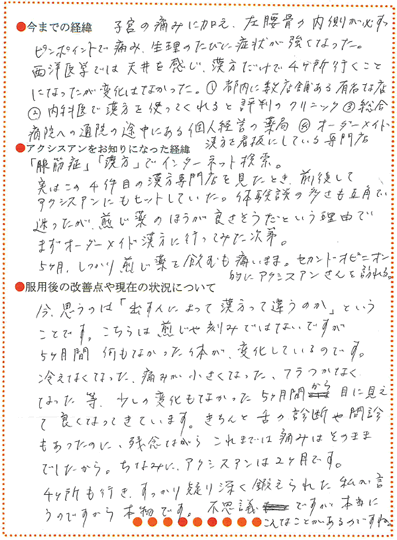 ●今までの経緯　子宮の痛みに加え、左腰骨の内側が必ず
ピンポイントで痛み、生理のたびに症状が強くなった。
西洋医学では天井を感じ、漢方だけで4ヶ所行くこと
になったが変化はなかった。①都内に数店舗ある有名な店
②内科医で漢方を使ってくれると評判のクリニック③総合
病院への通院の途中にある個人経営の薬局④オーダーメイド
漢方を看板にしている専門店
●アクシスアンをお知りになった経緯
「腺筋症」「漢方」でインターネット検索。
実はこの4件目の漢方専門店を見たとき、前後して
アクシスアンにもヒットしていた。体験談の多さも互角で
迷ったが、煎じ薬のほうが良さそうだという理由で
まずオーダーメイド漢方に行ってみた次第。
5ヶ月、しっかり煎じ薬を飲むも痛いまま。セカンドオピニオン
的にアクシスアンさんを訪れる。
●服用後の改善点や現在の状況について
今、思うのは「出す人によって漢方って違うのか」という
ことです。こちらは煎じや刻みではないですが
5ヶ月間何もなかった体が、変化しているのです。
冷えなくなった、痛みが小さくなった、フラつかなく
なった等、少しの変化もなかった5ヶ月間から目に見え
て良くなってきています。きちんと舌の診断や問診
もあったのに、残念ながらこれまでは痛みはそのまま
でしたから。ちなみに、アクシスアンは2ヶ月です。
4ヶ所も行き、すっかり疑り深く鍛えられた私が言
うのですから本物です。不思議ですが本当に
こんなことがあるのですね